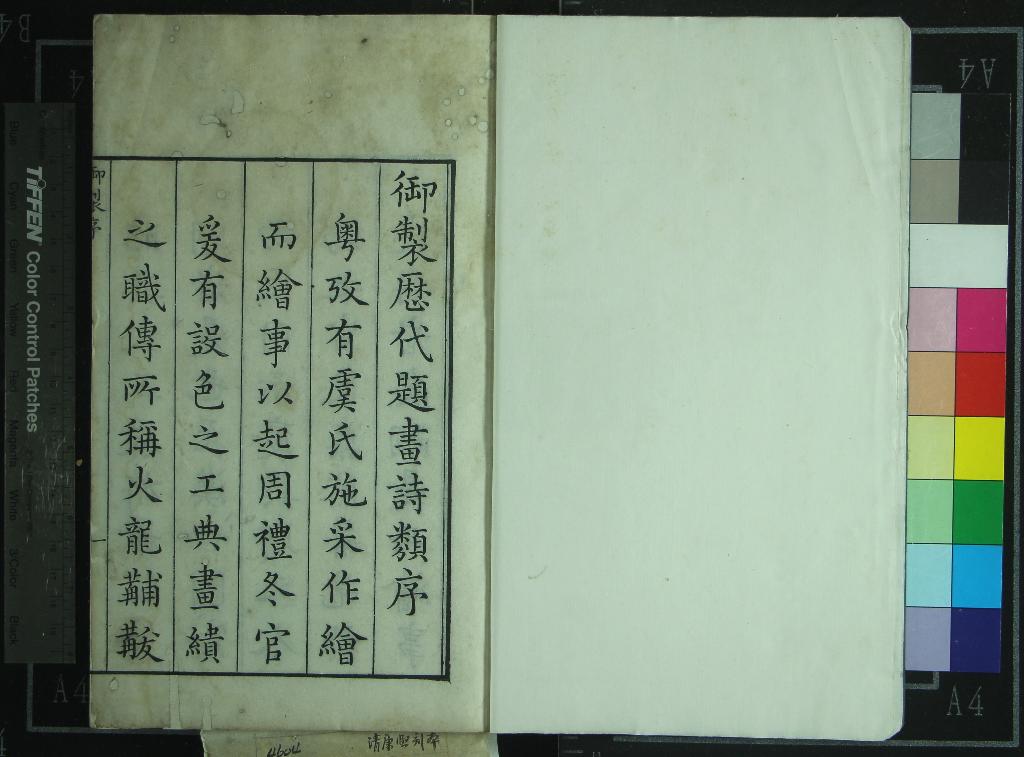 御製歷代題畫詩類序
粵攷有虞氏施采作繪
而繪事以起周禮冬官
爰有設色之工典畫繢
之職傳所稱火龍黼黻
御製序
一
4604
清康熙刻本
TIFFEN Color Control Patches
Blue Cyan Green Yellow Red Magenta White 3/Color Black
B4
A4
A4
A4
A4